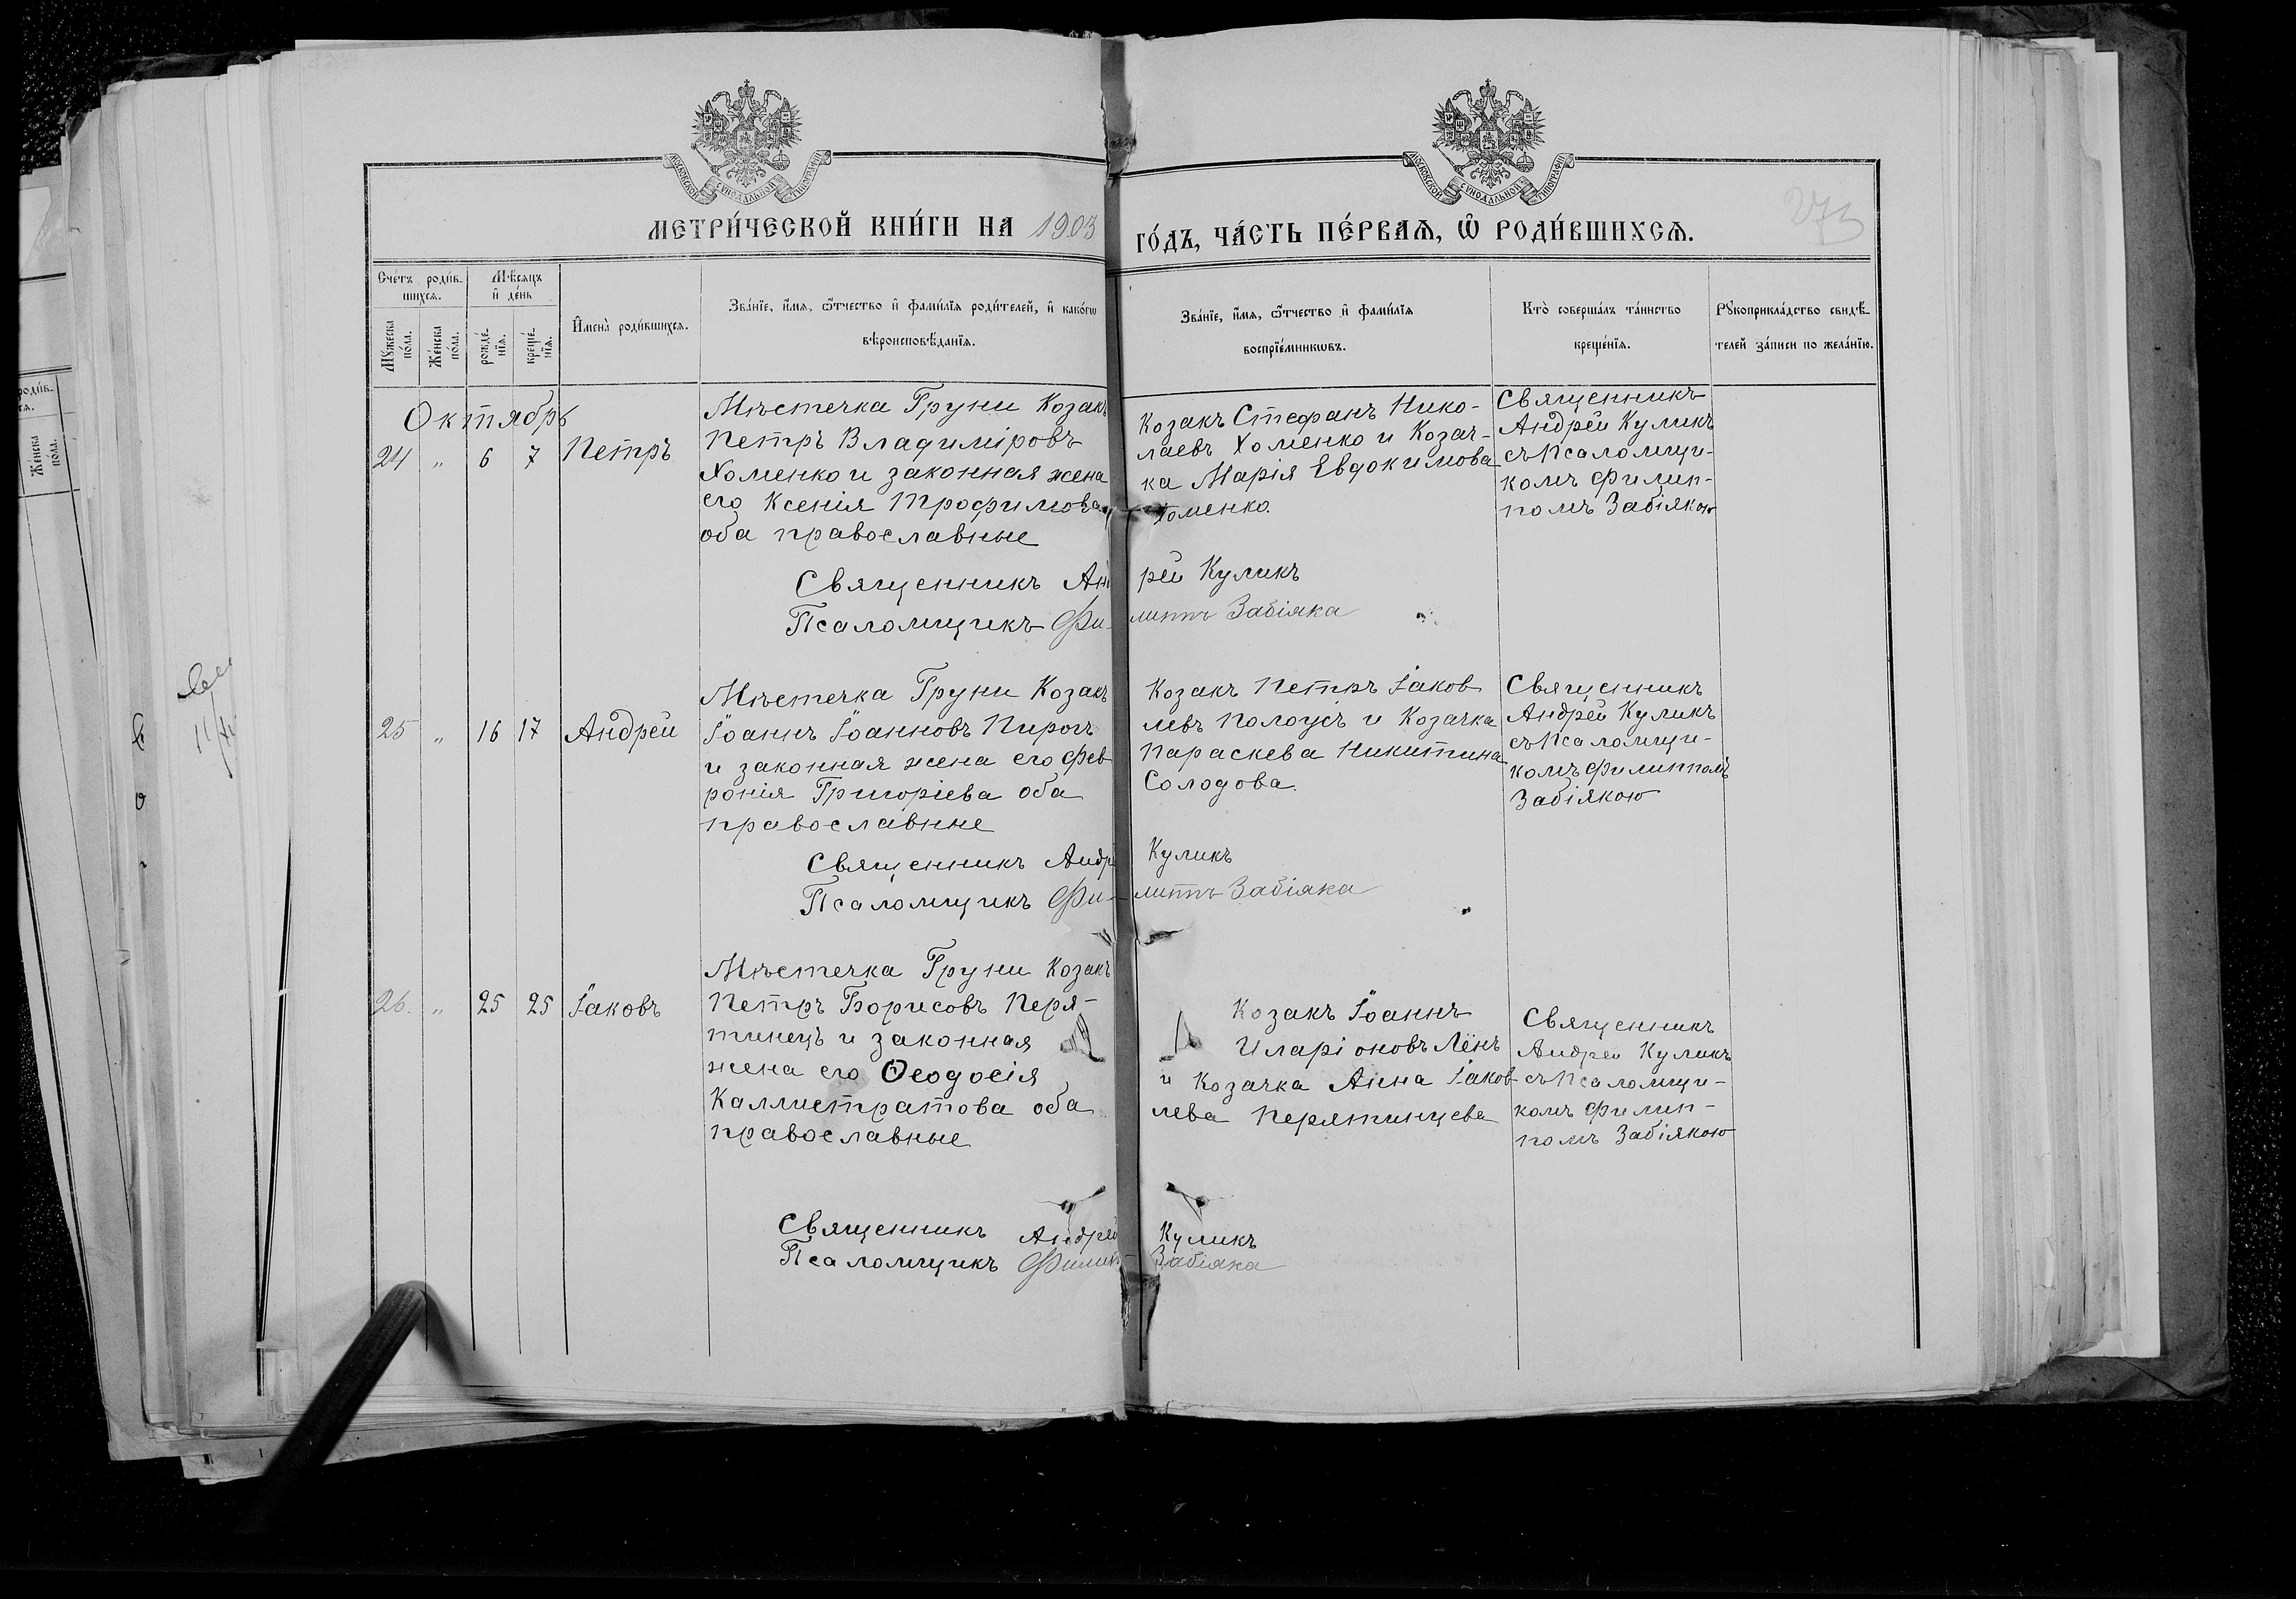 МОСКОВСКОЙ СѴНОДАЛЬНОЙ ТИПОГРАФІИ
МОСКОВСКОЙ СѴНОДАЛЬНОЙ ТИПОГРАФІИ
МЕТРИ́ЧЕСКОЙ КНИ́ГИ НА 1903
ГО́ДЪ, ЧА́СТЬ ПЕ́РВАѦ, Ѿ РОДИ́ВШИХСѦ.
273
Сче́тъ роди́в-
шихсѧ.
Мѣ́сѧцъ
и҆ де́нь
Мꙋ́жеска по́ла.
Же́нска по́ла.
рожде́-
нїѧ.
креще́-
нїѧ.
И҆мена̀ роди́вшихсѧ.
Зва́нїе, и҆́мѧ, ѻ҆́тчество и҆ фами́лїѧ роди́телей, и҆ како́гѡ
вѣроисповѣ́данїѧ.
Зва́нїе, и҆́мѧ, ѻ҆́тчество и҆ фами́лїѧ
воспрїе́мникѡвъ.
Кто̀ соверша́лъ та́инство
креще́нїѧ.
Рꙋкоприкла́дство свидѣ́-
телей за́писи по жела́нїю.
Октябрь
24 „ 6 7 Петръ
Мѣстечка Груни Козакъ
Петръ Владиміровъ
Хоменко и законная жена
его Ксенія Трофимова,
оба православные
Козакъ Стефанъ Нико-
лаевъ Хоменко и Козач-
ка Марія Евдокимова
Хоменко.
Священникъ
Андрей Куликъ
съ Псаломщи-
комъ Филип-
помъ Забіякою
Священникъ Анд рей Куликъ
Псаломщикъ Фи- липпъ Забіяка
25 „ 16 17 Андрей
Мѣстечка Груни Козакъ
Іоаннъ Іоанновъ Пирогъ
и законная жена его Фев
ронія Григоріева оба
православные
Козакъ Петръ Іаков
левъ Полоусъ и Козачка
Параскева Никитина
Солодова.
Священникъ
Андрей Куликъ
съ Псаломщи-
комъ Филиппомъ
Забіякою
Священникъ Андрей Куликъ
Псаломщикъ Фи- липпъ Забіяка
26. „ 25 25 Іаковъ
Мѣстечка Груни Козакъ
Петръ Борисовъ Перя-
тинецъ и законная
жена его Ѳеодосія
Каллистратова оба
православные
Козакъ Іоаннъ
Иларіоновъ Лёнъ
и Козачка Анна Іаков
лева Перятинцева
Священникъ
Андрей Куликъ
съ Псаломщи-
комъ Филип-
помъ Забіякою
Священникъ Андрей Куликъ
Псаломщикъ Филиппъ Забіяка
Же́нска по́ла.